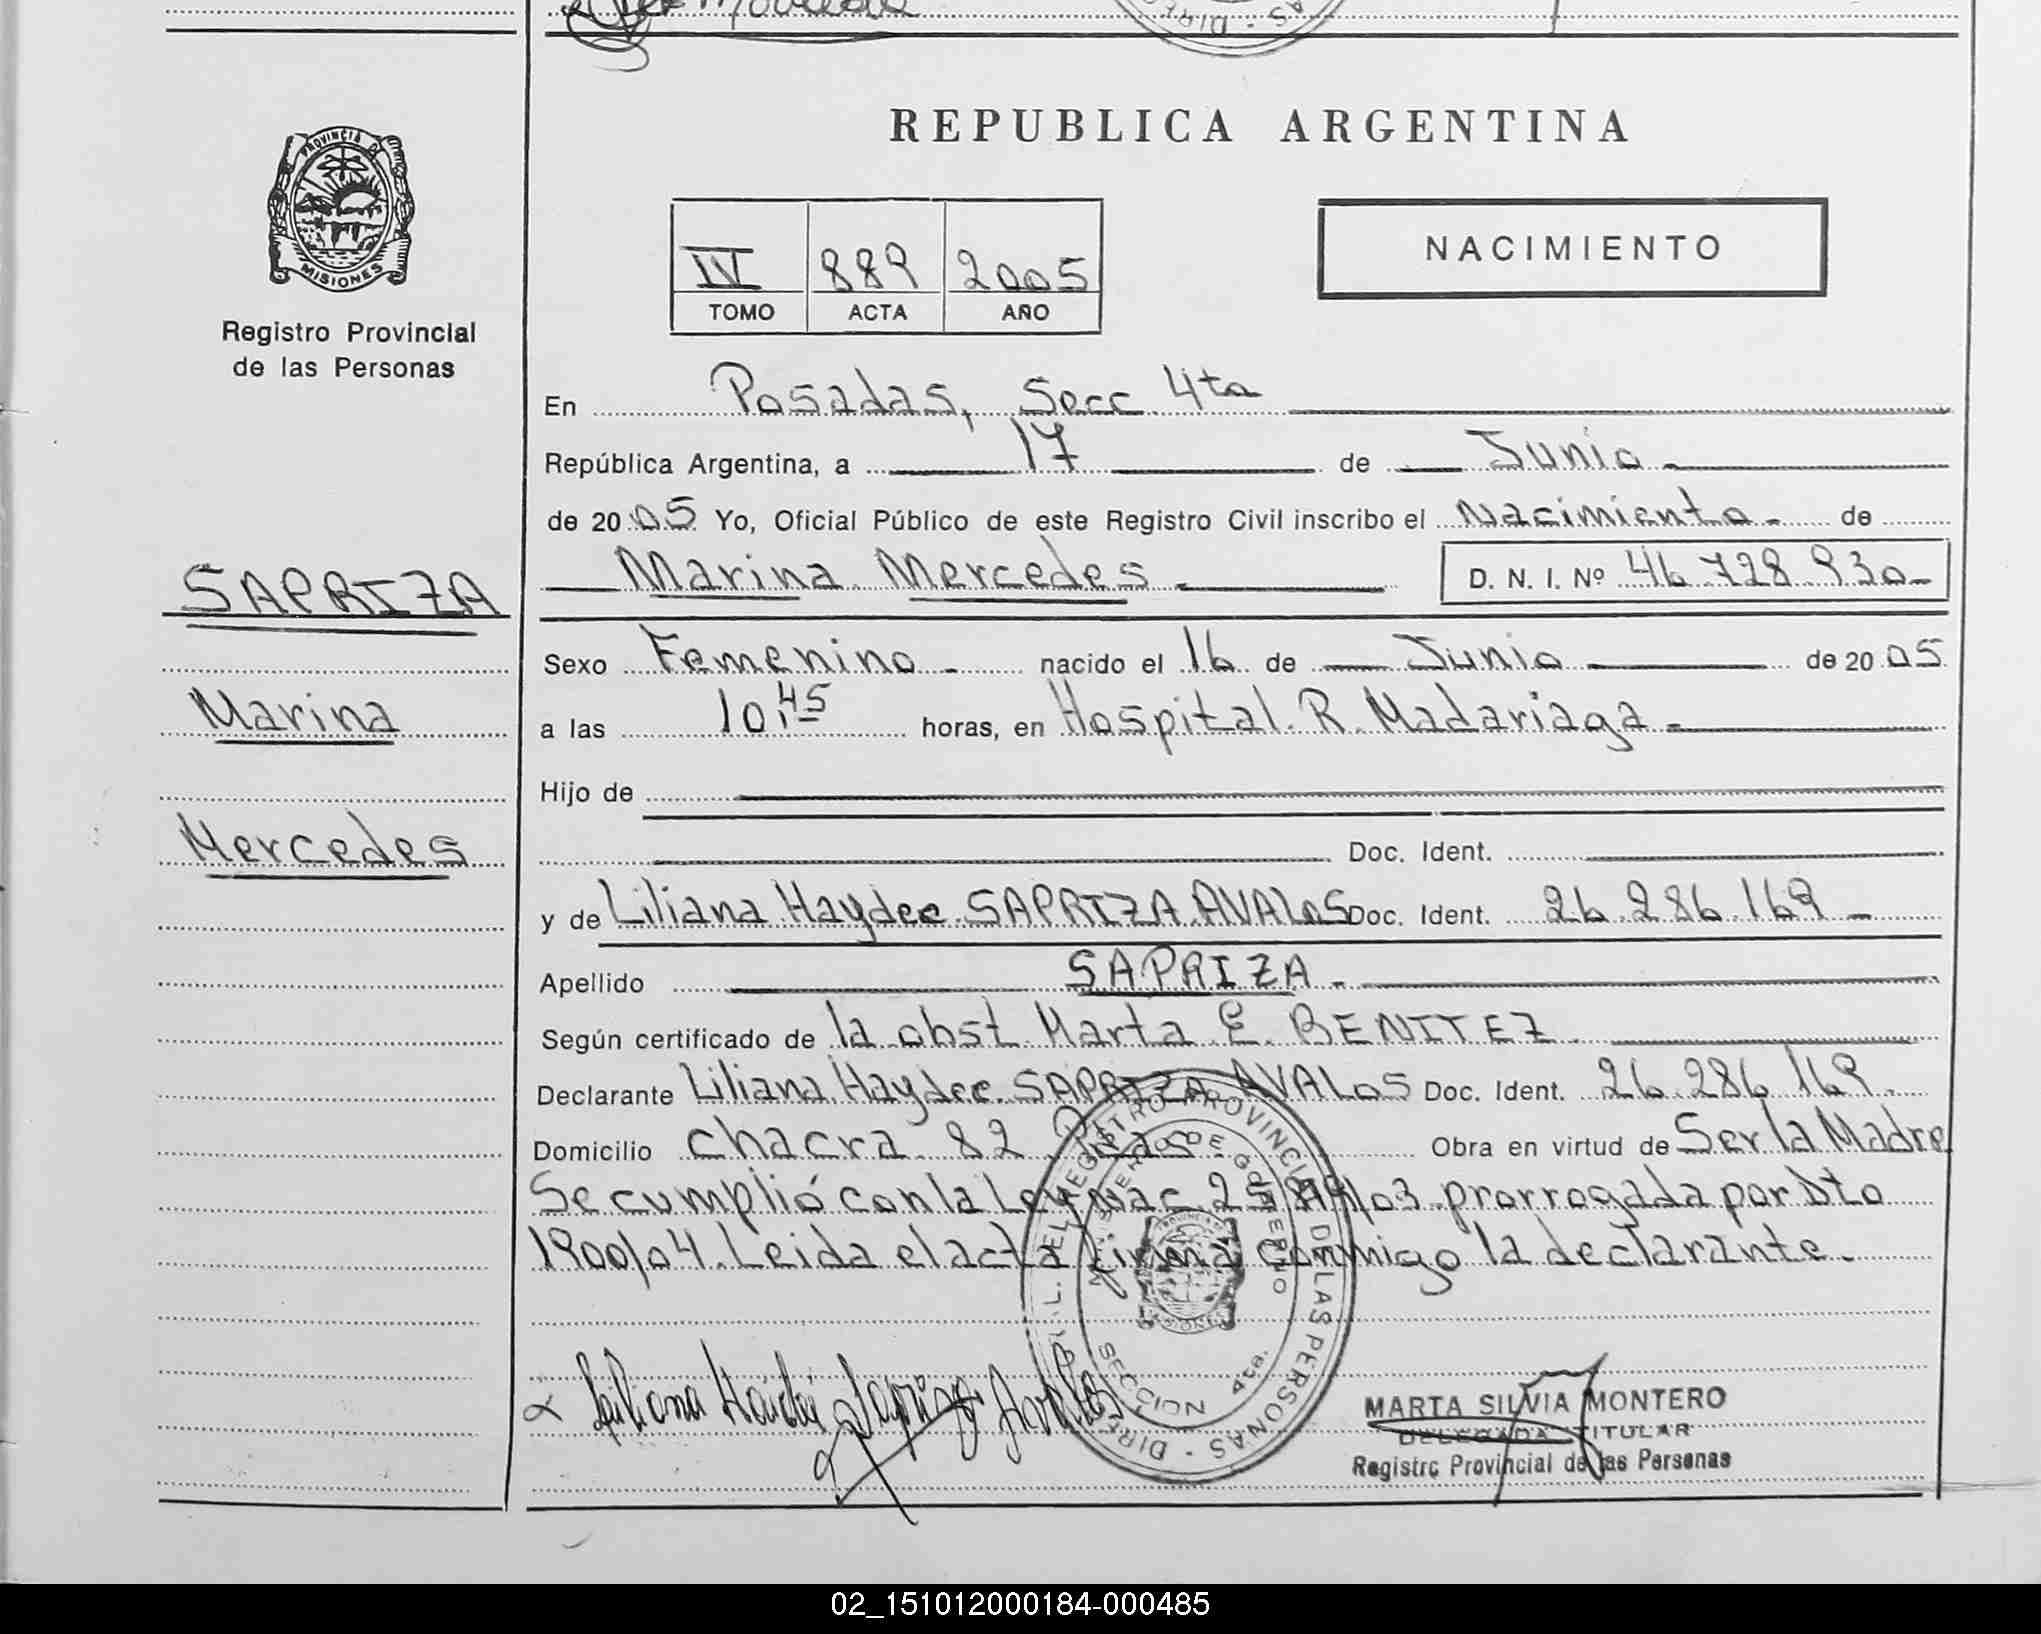 REPUBLICA ARGENTINA
PROVINCIA DE
MISIONES
Registro Provincial
de las Personas
SAPRIZA
Marina
Mercedes
IV 889 2005
TOMO ACTA AÑO
NACIMIENTO
En Posadas, Secc 4ta
República Argentina, a 17 de Junio
de 2005 Yo, Oficial Público de este Registro Civil inscribo el Nacimiento de
Marina Mercedes D. N. I. Nº 46.728.930
Sexo Femenino nacido el 16 de Junio de 2005
a las 10,45 horas, en Hospital R. Madariaga
Hijo de
Doc. Ident.
y de Liliana Haydee SAPRIZA AVALOS Doc. Ident. 26.286.169
Apellido SAPRIZA
Según certificado de la obst Marta E. BENITEZ
Declarante Liliana Haydee SAPRIZA AVALOS Doc. Ident. 26.286.169
Domicilio chacra 82 Pdas Obra en virtud de Ser la Madre
Se cumplió con la Ley Nac 25819/03 prorrogada por Dto
1900/04. Leida el acta firma conmigo la declarante.
DEL REGISTRO PROVINCIAL DE LAS PERSONAS - DIR
MINISTERIO DE GOBIERNO
SECCION 4ta.
Liliana Haidé Sapriza Avalos
MARTA SILVIA MONTERO
DELEGADA TITULAR
Registro Provincial de las Personas
02_151012000184-000485